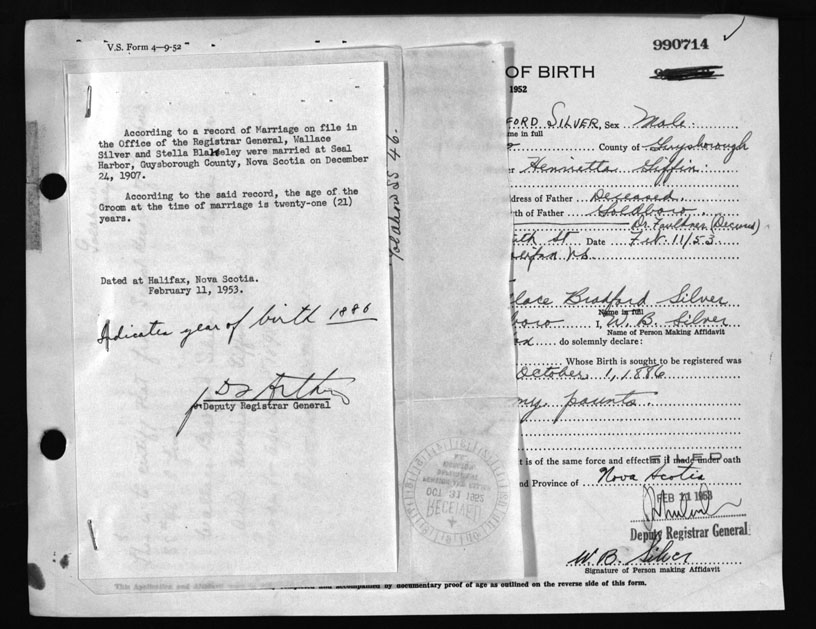 V.S. Form 4—9-52
According to a record of Marriage on file in
the Office of the Registrar General, Wallace
Silver and Stella Blakeley were married at Seal
Harbor, Guysborough County, Nova Scotia on December
24, 1907.
According to the said record, the age of the
Groom at the time of marriage is twenty-one (21)
years.
Dated at Halifax, Nova Scotia.
February 11, 1953.
Indicates year of birth 1886
Deputy Registrar General
990714
OF BIRTH
1952
FORD SILVER, Sex Male
me in full
County of Guysborough
Henrietta Giffin
ddress of Father Deceased
rth of Father Goldboro
Dr. Faulkner (Deceased)
St Date Feb. 11/53
alifax NS
llace Bradford Silver
Name in full
boro I, W. B. Silver
Name of Person Making Affidavit
do solemnly declare:
Whose Birth is sought to be registered was
October 1, 1886
my parents.
t is of the same force and effect as if made under oath
FILED
nd Province of Nova Scotia
FEB 11 1953
Deputy Registrar General
W B Silver
Signature of Person making Affidavit
OCT 31
RECEIVED
This Application and
accompanied by documentary proof of age as outlined on the reverse side of this form.